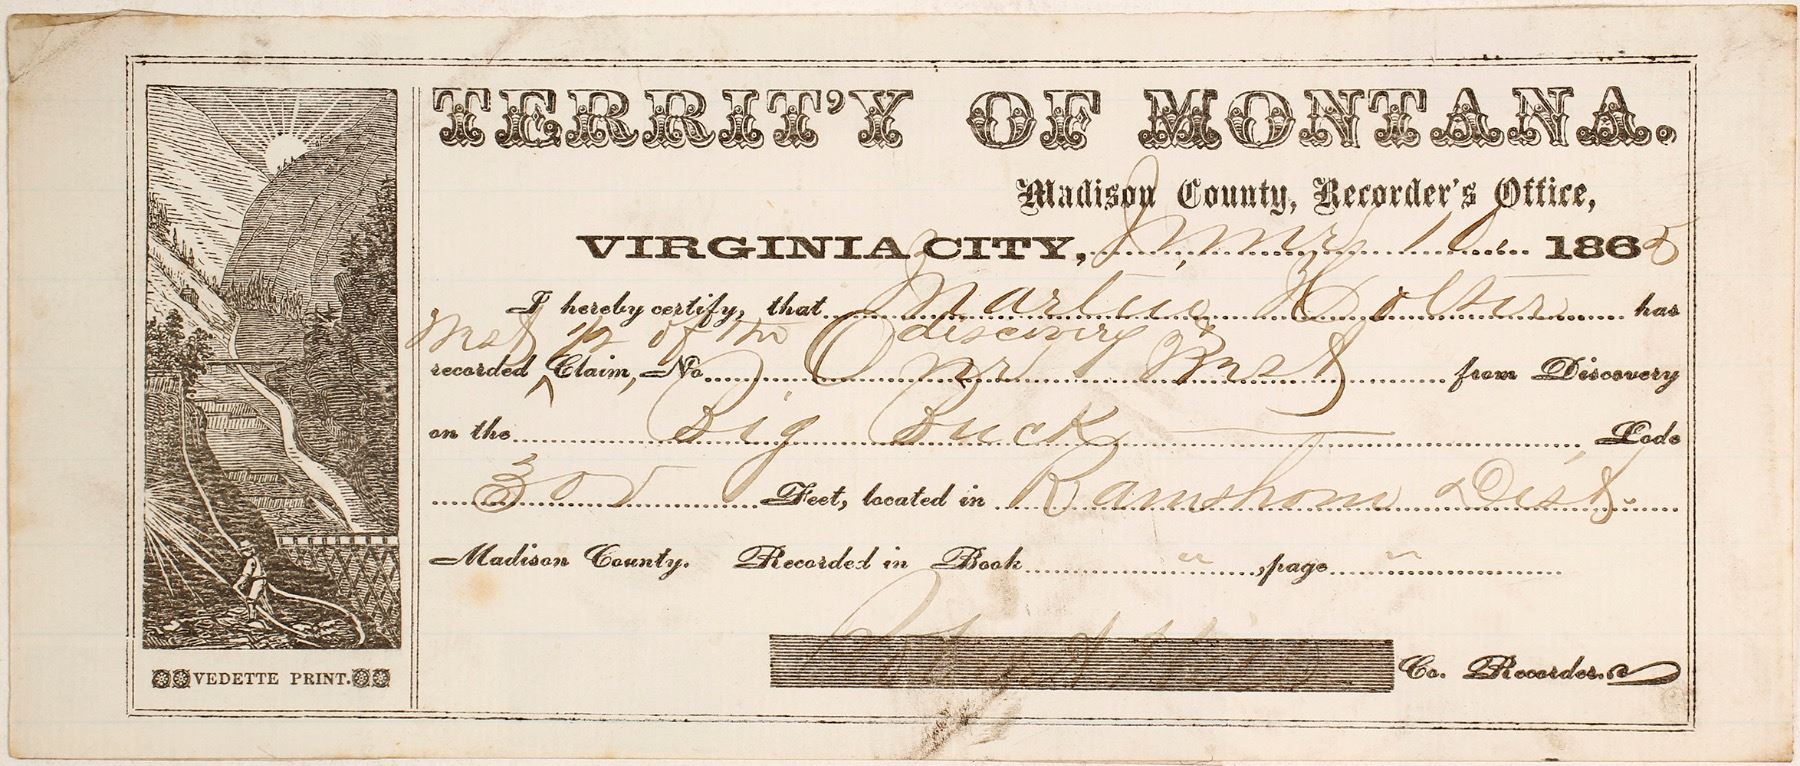 TERRIT'Y OF MONTANA.
Madison County, Recorder's Office,
VIRGINIA CITY, June 10 1865
I hereby certify, that Martin Holter has
West ½ of the discovery &
recorded Claim, No. One West from Discovery
on the Big Buck Lode
300 Feet, located in Ramshorn Dist.
Madison County. Recorded in Book " , page "
Co. Recorder.
VEDETTE PRINT.